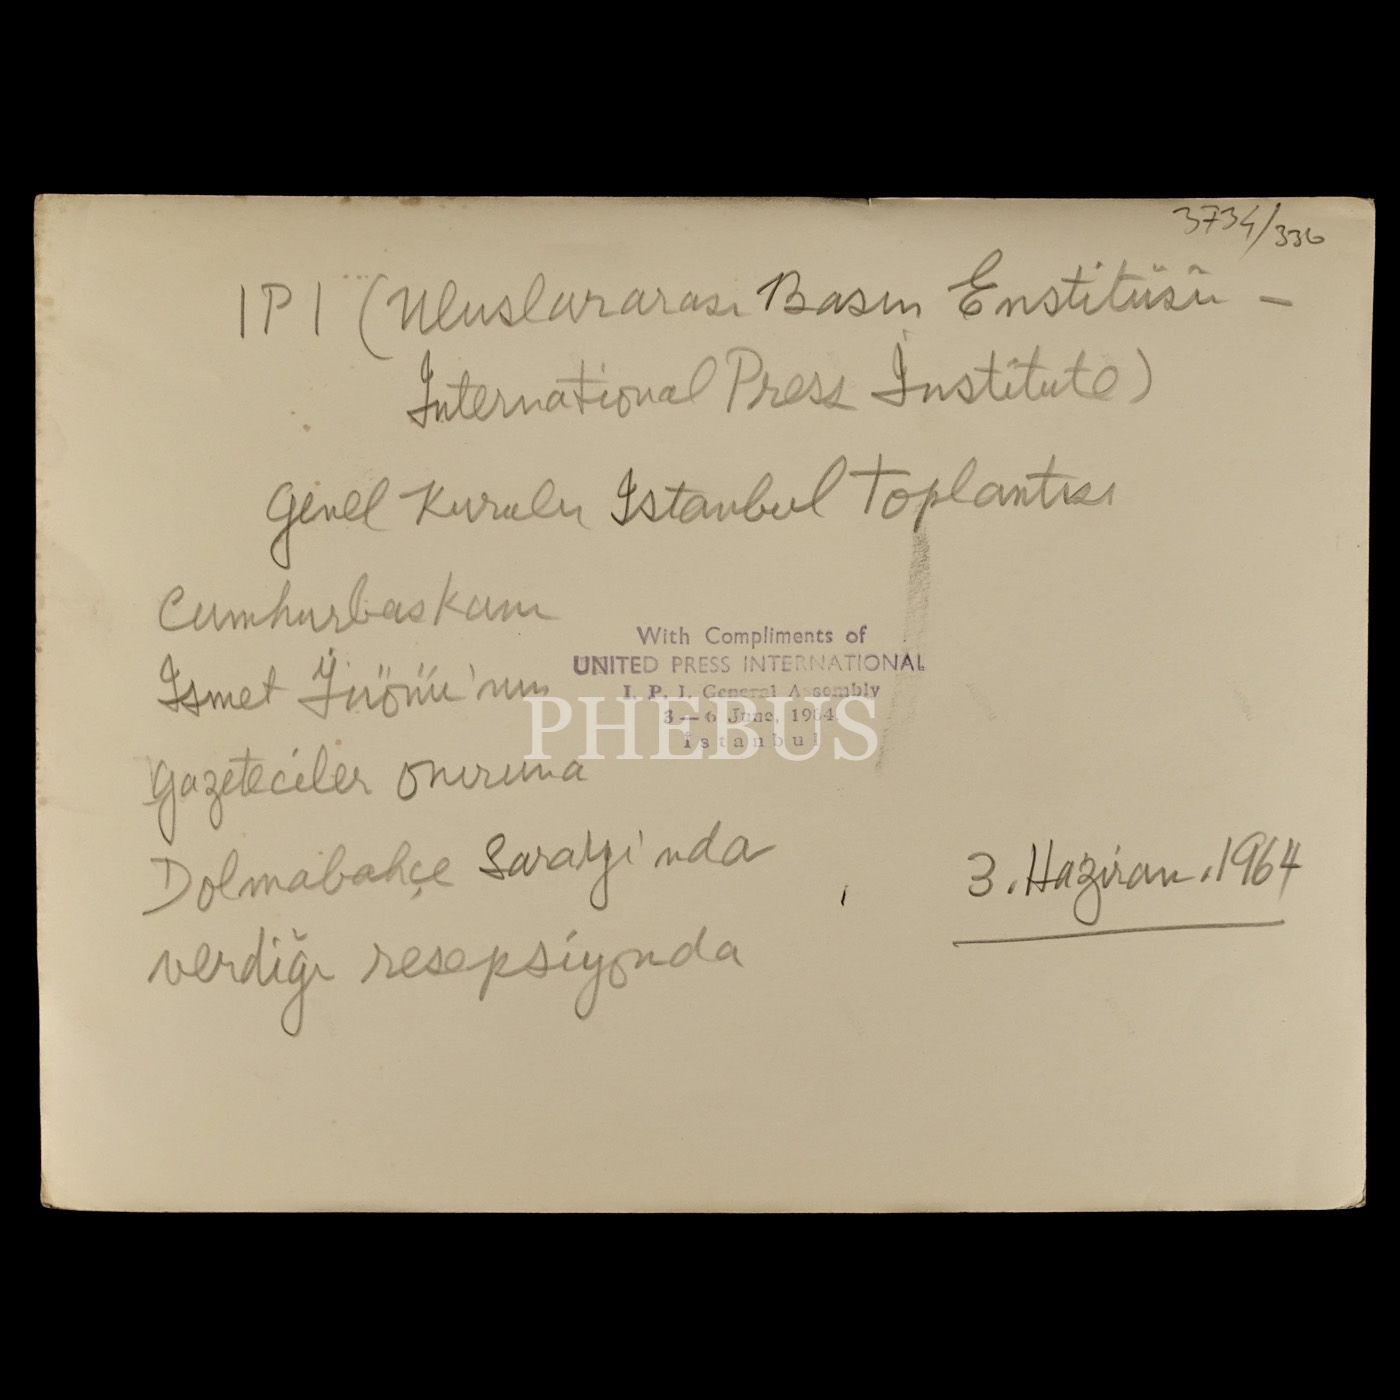 3734/336
IPI (Uluslararası Basın Enstitüsü –
International Press İnstitute)
Genel Kurulu Istanbul Toplantısı
Cumhurbaskanı
Ismet İnönü'nün
gazeteciler onuruna
Dolmabahçe Sarayı'nda
verdiği resepsiyonda
With Compliments of
UNITED PRESS INTERNATIONAL
I. P. I. General Assembly
3 — 6 June, 1964
İstanbul
PHEBUS
3. Haziran. 1964